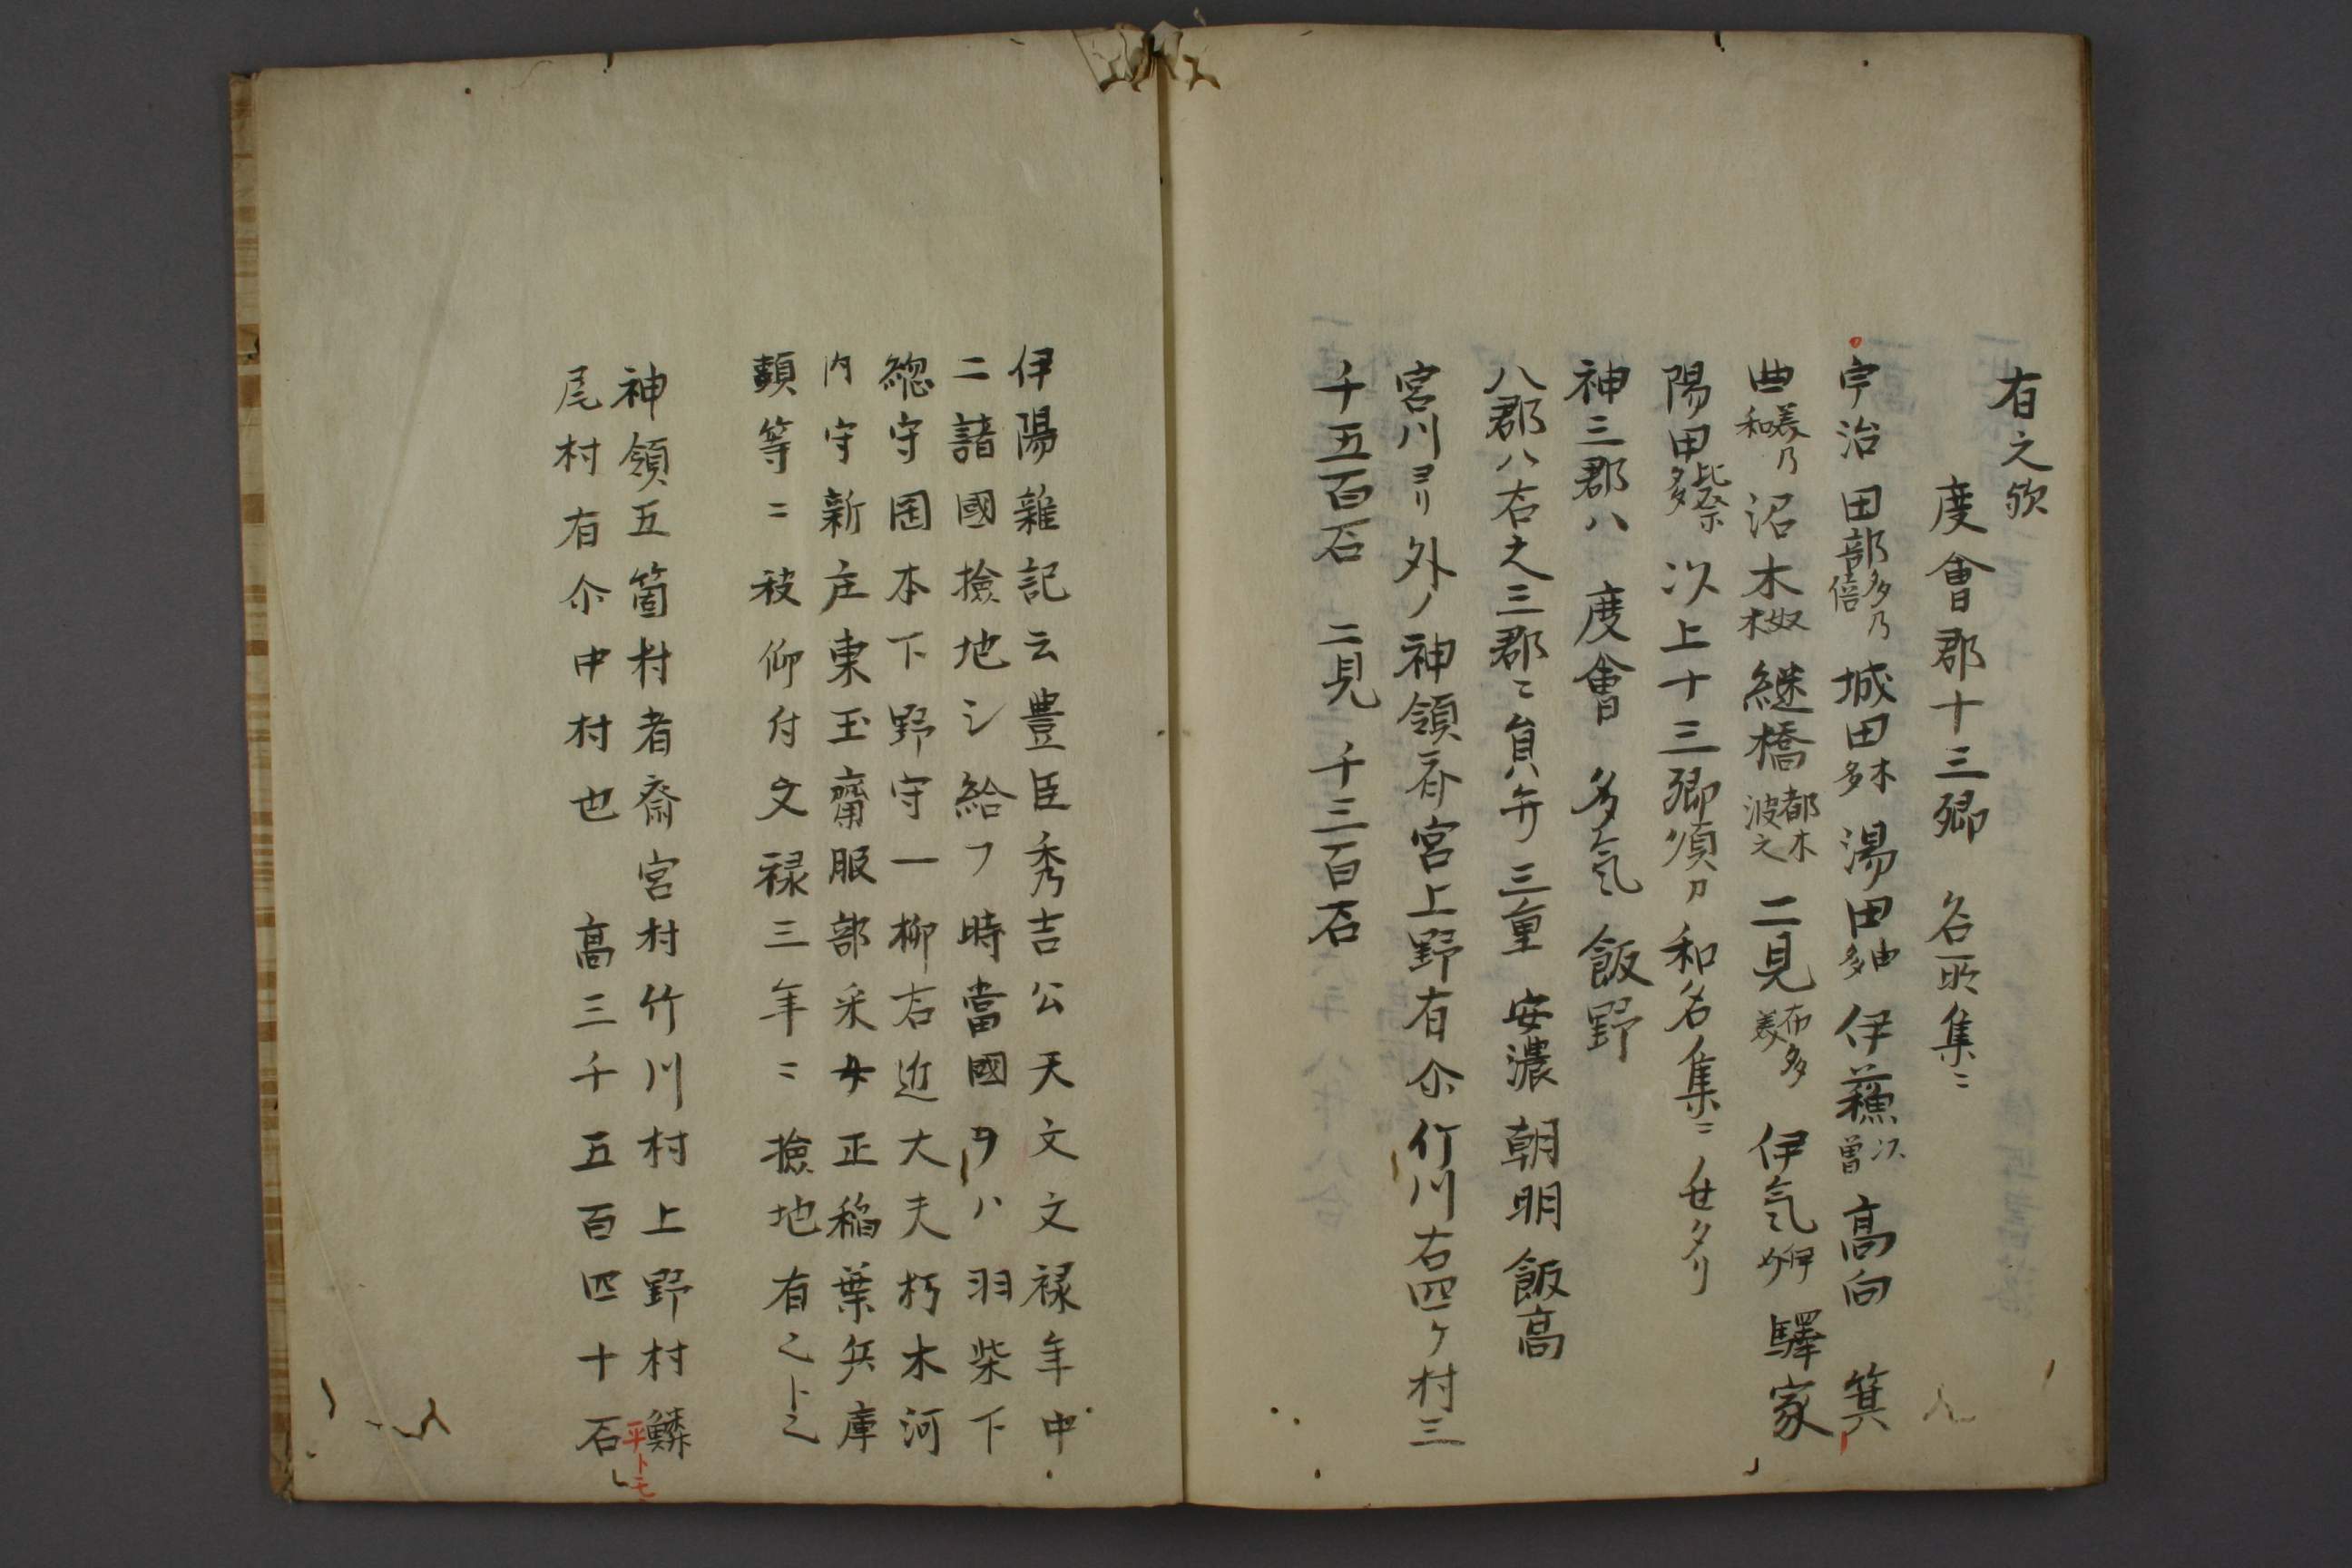 有之歟
度會郡十三郷　名所集ニ
宇治　田部多乃倍　城田木多　湯田由多　伊蘓以曽　高向　箕
曲美乃和　沼木奴木　継橋都木波之　二見布多美　伊気伊介　驛家
陽田比奈多　以上十三郷須ヲ和名集ニノセタリ
神三郡ハ　度會　多気　飯野
八郡ハ右之三郡ニ員弁　三重　安濃　朝明　飯高
宮川ヨリ外ノ神領斎宮上野有尒竹川右四ケ村三
千五百石　二見　千三百石
伊陽雜記云豊臣秀吉公天文文禄年中
ニ諸國撿地シ給フ時當國ヲハ羽柴下
総守岡本下野守一柳右近大夫朽木河
内守新庄東玉齋服部采女正稲葉兵庫
頭等ニ被仰付文禄三年ニ撿地有之ト云
神領五箇村者斎宮村竹川村上野村鱗
平トモ
尾村有尒中村也　高三千五百四十石